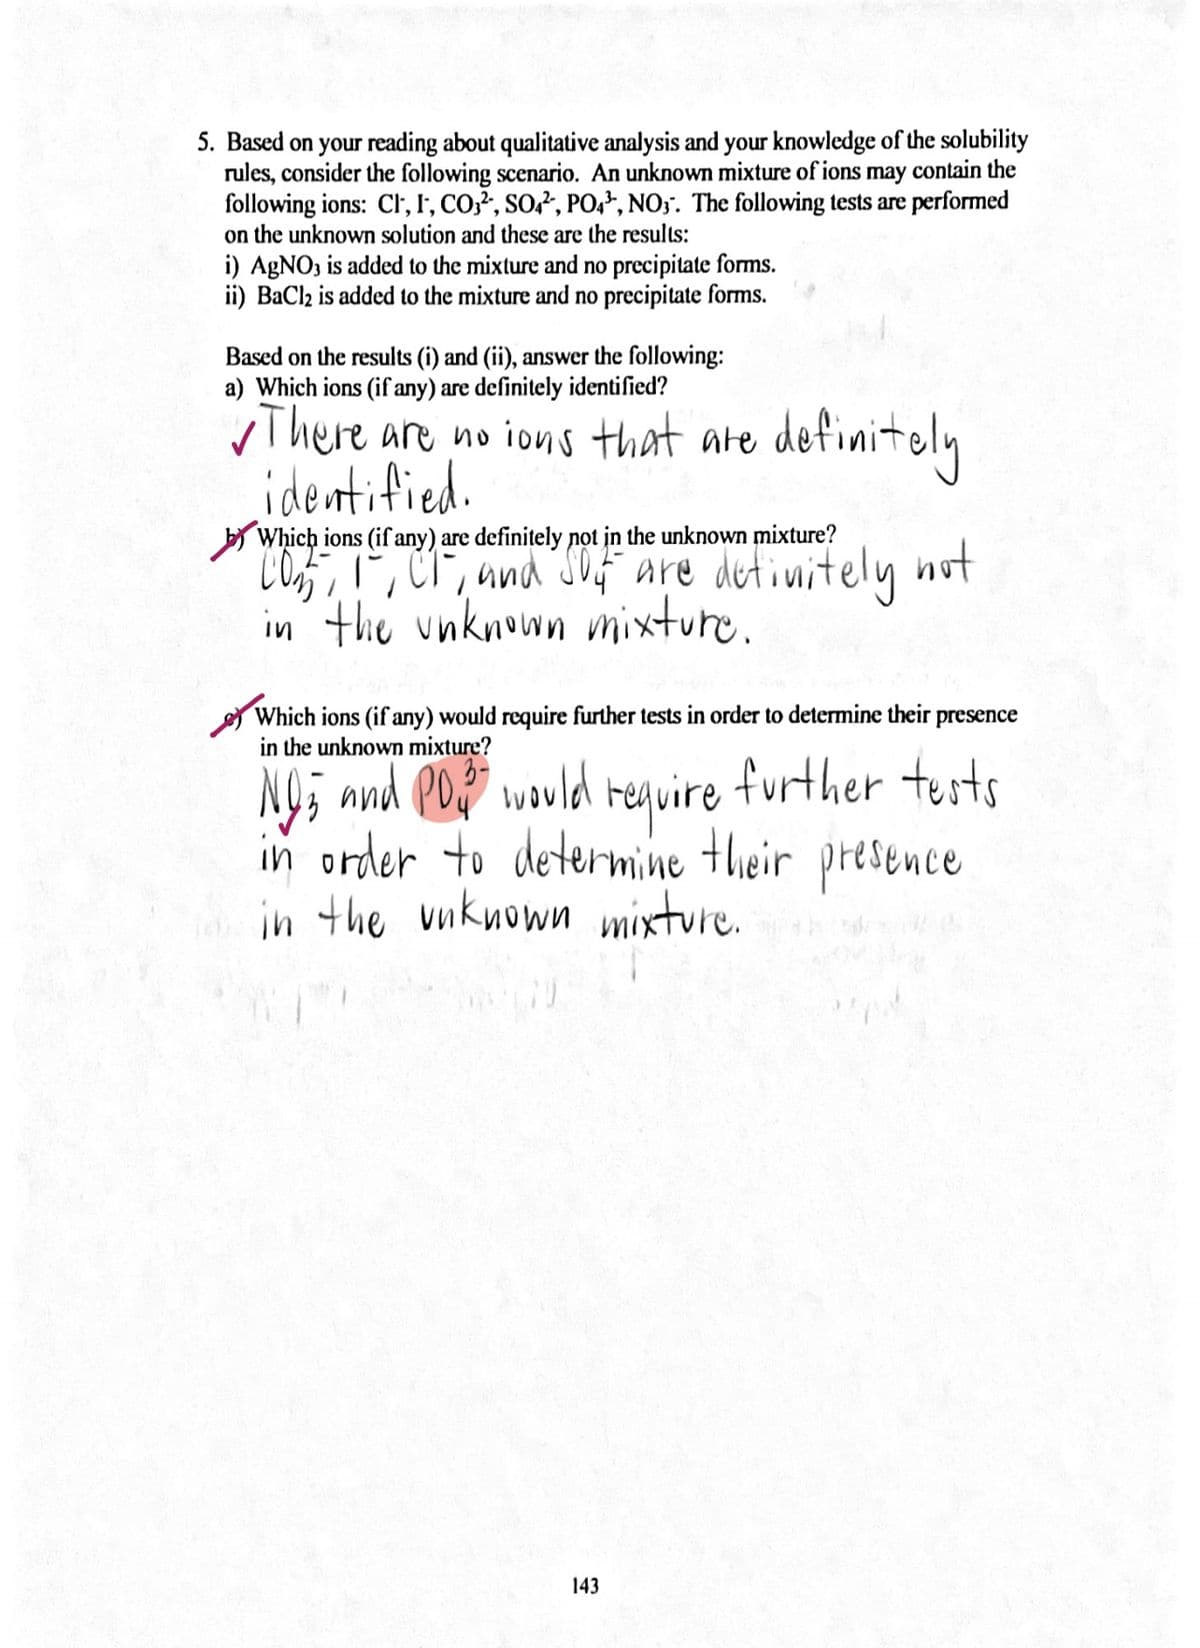 5. Based on your reading about qualitative analysis and your knowledge of the solubility
rules, consider the following scenario. An unknown mixture of ions may contain the
following ions: Cl⁻, I⁻, CO₃²⁻, SO₄²⁻, PO₄³⁻, NO₃⁻. The following tests are performed
on the unknown solution and these are the results:
i) AgNO₃ is added to the mixture and no precipitate forms.
ii) BaCl₂ is added to the mixture and no precipitate forms.
Based on the results (i) and (ii), answer the following:
a) Which ions (if any) are definitely identified?
✓There are no ions that are definitely
identified.
b) Which ions (if any) are definitely not in the unknown mixture?
CO₃²⁻, I⁻, Cl⁻, and SO₄²⁻ are definitely not
in the unknown mixture.
c) Which ions (if any) would require further tests in order to determine their presence
in the unknown mixture?
NO₃⁻ and PO₄³⁻ would require further tests
✓
in order to determine their presence
in the unknown mixture.
143